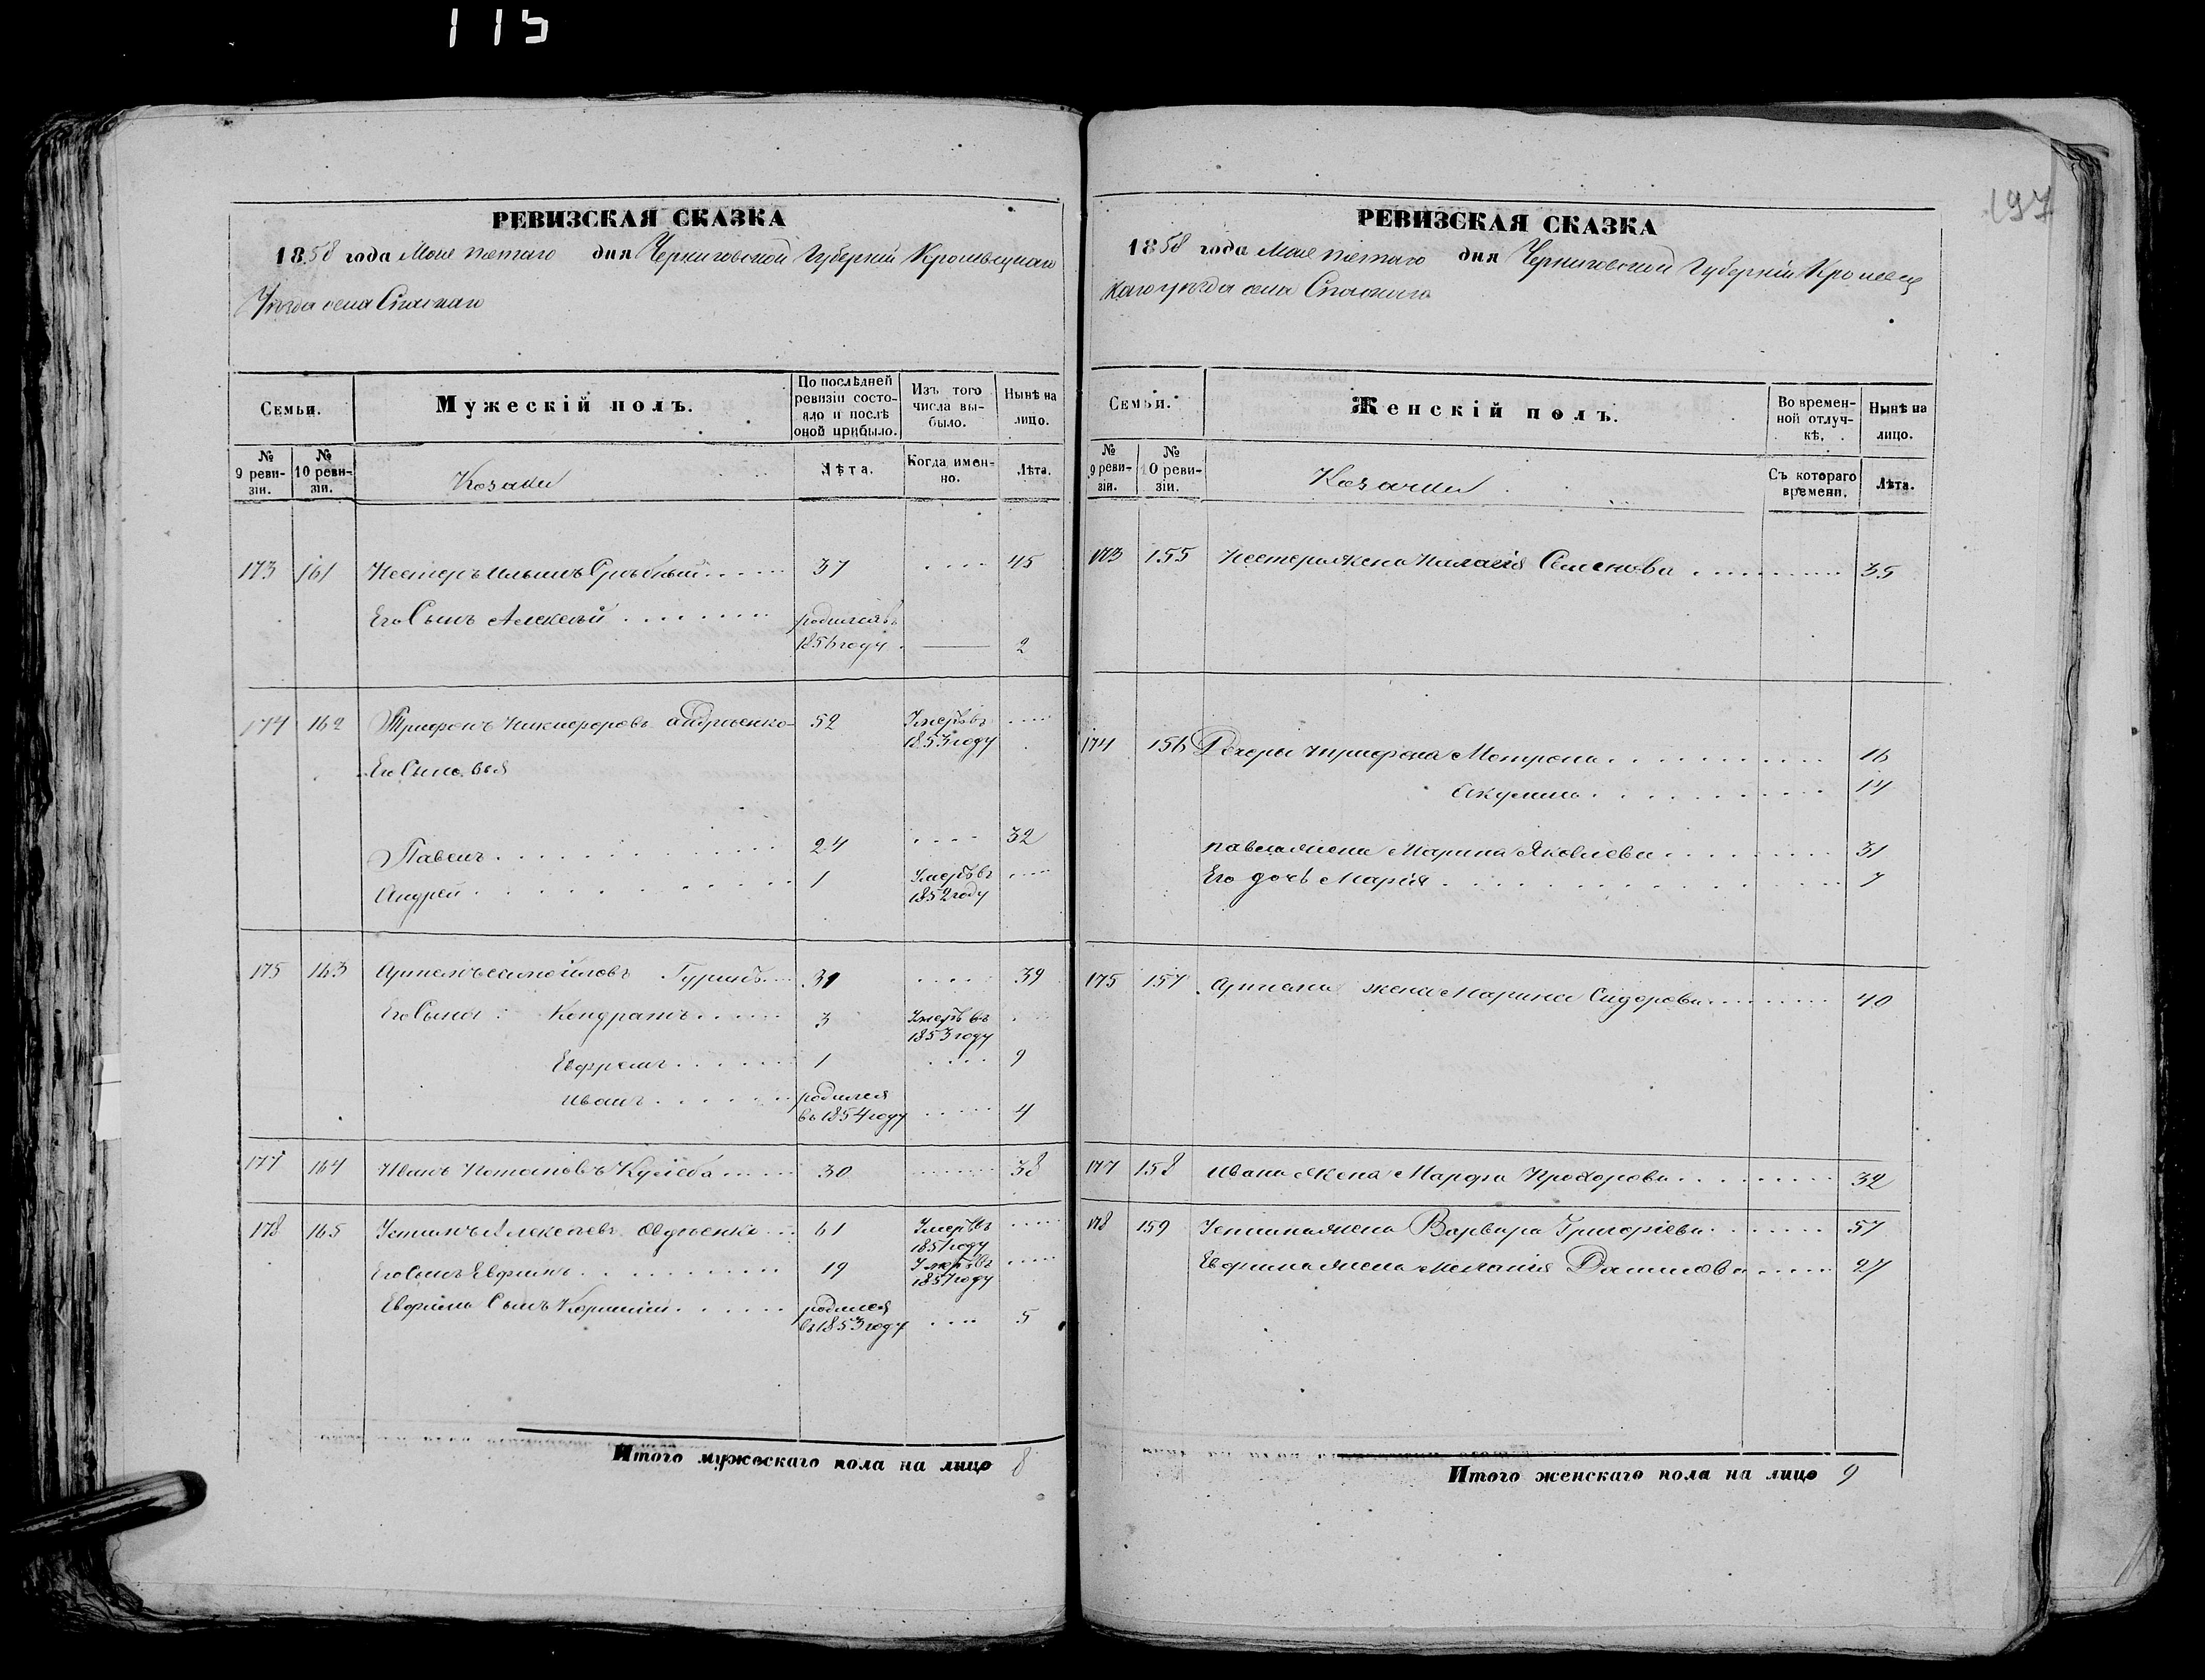 115
197
РЕВИЗСКАЯ СКАЗКА
1858 года Мая пятаго дня Черниговской Губерніи Кролевецкаго
Уѣзда села Спаскаго
Семьи.
Мужескій полъ.
По послѣдней ревизіи состояло и послѣ оной прибыло.
Изъ того числа выбыло.
Нынѣ на лицо.
№ 9 ревизіи.
№ 10 ревизіи.
Козаки
Лѣта.
Когда именно.
Лѣта.
173 161 Нестеръ Ильинъ 37 45
Его Сынъ Алексѣй родился въ
1856 году 2
174 162 Трифонъ Никифоровъ Андріенко 52 Умеръ въ
1853 году
Его Сыновья
Павелъ 24 32
Андрей 1 Умеръ въ
1852 году
175 163 Артемъ Самойловъ Гуринъ 31 39
Его Сыны: Кондратъ 3 Умеръ въ
1853 году
Ефремъ 1 9
Иванъ родился
въ 1854 году 4
177 164 Иванъ Потаповъ Кулеба 30 38
178 165 Устинъ Алексѣевъ Овдѣенко 61 Умеръ въ
1851 году
Его Сынъ Евфимъ 19 Умеръ въ
1857 году
Евфима Сынъ родился
въ 1853 году 5
Итого мужескаго пола на лицо 8
РЕВИЗСКАЯ СКАЗКА
1858 года Мая пятаго дня Черниговской Губерніи Кролевец
каго уѣзда села Спаскаго
Семьи.
Женскій полъ.
Во временной отлучкѣ.
Нынѣ на лицо.
№ 9 ревизіи.
№ 10 ревизіи.
Козачки
Съ котораго времени.
Лѣта.
173 155 Нестера жена Пилагія Семенова 35
174 156 Дочери Трифона Мотрона 16
Акулина 14
Павла жена Марина Яковлева 31
Его дочь Марія 7
175 157 Артема жена Марина Сидорова 40
177 158 Ивана жена Марфа Прохорова 32
178 159 Устина жена Варвара Григоріева 57
Евфима жена Меланія Данилова 27
Итого женскаго пола на лицо 9